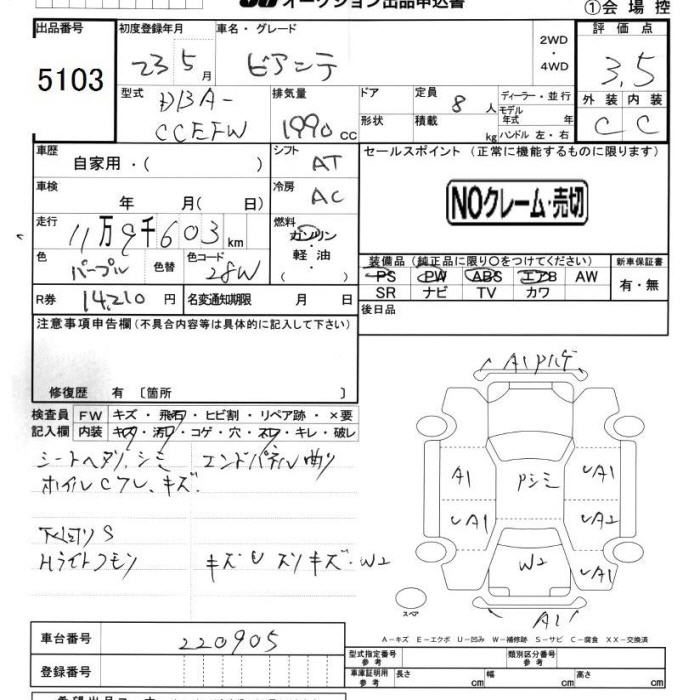 オークション出品申込書
①会場控
出品番号
5103
初度登録年月
23 5月
車名・グレード
ビアンテ
2WD
・
4WD
評価点
3.5
外装 内装
C C
型式
DBA-
CCEFW
排気量
1990 cc
ドア
形状
定員
8 人
積載
kg
ディーラー・並行
モデル
年式 年
ハンドル 左・右
車歴
自家用・( )
シフト
AT
車検
年 月( 日)
冷房
AC
走行
11万9千603km
燃料
ガソリン
・
軽油
( )
色
パープル
色替
色コード
28W
R券 14,210 円
名変通知期限 月 日
セールスポイント (正常に機能するものに限ります)
NOクレーム・売切
装備品 (純正品に限り○をつけてください)
PS PW ABS エアB AW
SR ナビ TV カワ
新車保証書
有・無
後日品
注意事項申告欄(不具合内容等は具体的に記入して下さい)
修復歴 有 〔箇所 〕
検査員
記入欄
FW キズ・飛石・ヒビ割・リペア跡・×要
内装 キズ・汚れ・コゲ・穴・スレ・キレ・破レ
シートヘタリ、シミ エンドパネル曲り
ホイルCフレ、キズ.
下回りS
Hライトクモリ キズU スリキズ・W2
A1ハゲ
A1
Pシミ
UA1
UA1
UA2
W2
UA1
A1
スペア
A-キズ E-エクボ U-凹み W-補修跡 S-サビ C-腐食 XX-交換済
車台番号 220905
登録番号
型式指定番号
参考
類別区分番号
参考
車庫証明用
参考
長さ cm
幅 cm
高さ cm